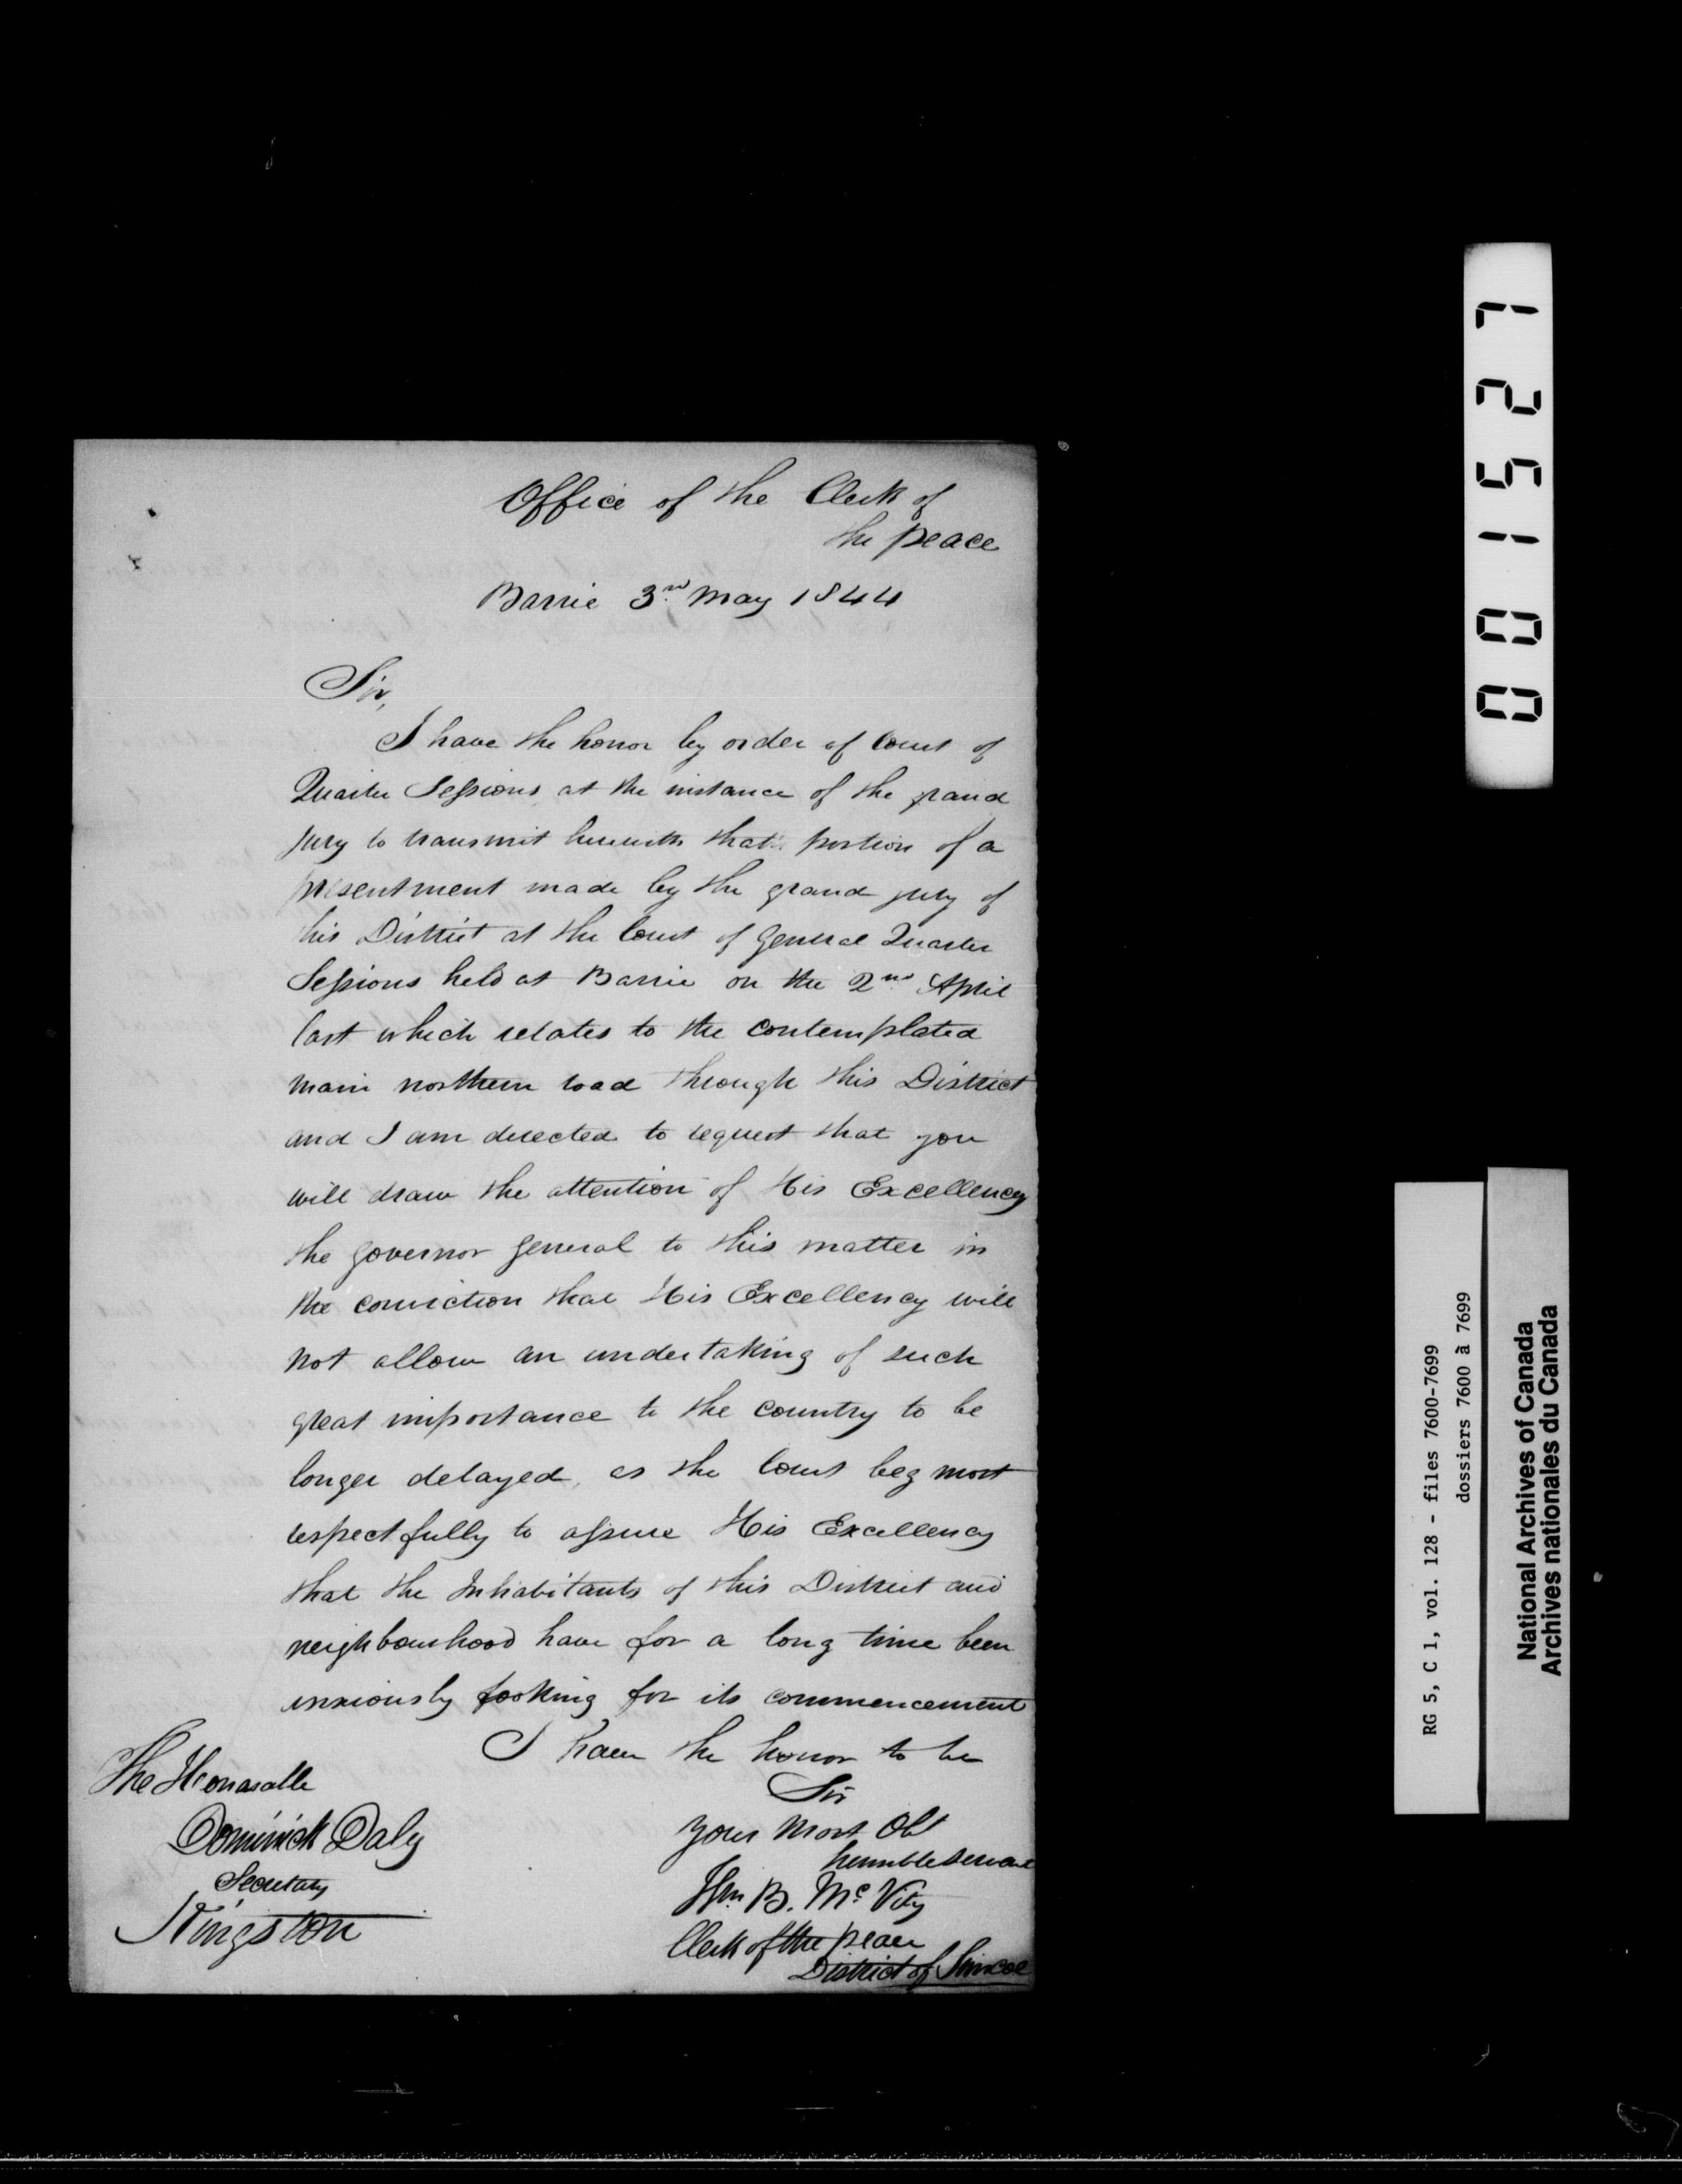 Office of the Clerk of
the peace
Barrie 3rd May 1844
Sir,
I have the honor by order of Court of
Quarter Sessions at the instance of the grand
jury to transmit herewith that portion of a
presentment made by the grand jury of
this District at the Court of General Quarter
Sessions held at Barrie on the 2nd April
last which relates to the contemplated
main northern road through this District
and I am directed to request that you
will draw the attention of His Excellency
the governor general to this matter in
the conviction that His Excellency will
not allow an undertaking of such
great importance to the country to be
longer delayed, as the Court beg most
respectfully to assure His Excellency
that the Inhabitants of this District and
neighbourhood have for a long time been
anxiously looking for its commencement
I have the honor to be
Sir
your most Obt
humble servant
Wm B. McVity
Clerk of the peace
District of Simcoe
The Honorable
Dominick Daly
Secretary
Kingston
001527
RG 5, C 1, vol. 128 - files 7600-7699
dossiers 7600 à 7699
National Archives of Canada
Archives nationales du Canada